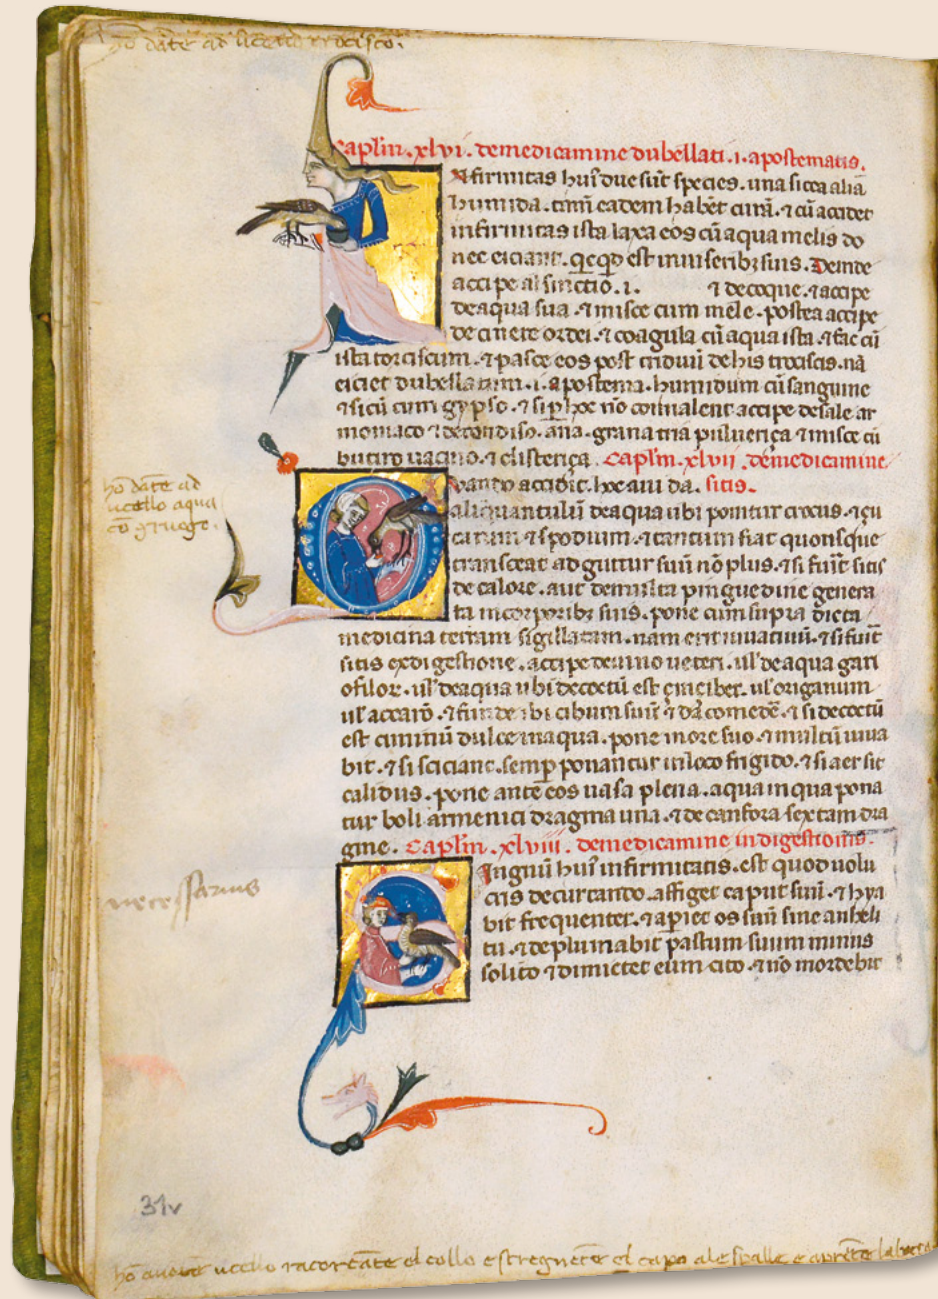 hō dāte ad ucello trocisco.
Caplm̄. xlvi. de medicamine dubellati .i. apostematis.
Infirmitas huiꝰ due sūt species. una sicca alia
humida. tam̄ eadem habēt curā. ⁊ cū accidet
infirmitas ista laxa eos cū aqua melis do
nec eiciant. qͥcqͥd est in uiscerib; suis. Deinde
accipe absinctio. i. ⁊ decoque. ⁊ accipe
de aqua sua. ⁊ misce cum mele. postea accipe
de cinere ordei. ⁊ coagula cū aqua ista. ⁊ fac cū
ista torciscum. ⁊ pasce eos post triduū de his trociscis. nā
eiciet dubellatum .i. apostema. humidum cū sanguine
⁊ siccū cum gypso. ⁊ si ꝑ hoc nō conualent accipe de sale ar
moniaco ⁊ de condiso. ana. grana tria puluerica ⁊ misce cū
butiro uacino. ⁊ clisterica. Caplm̄. xlvii. de medicamine
hō dāte ad
ucello aqua
cō gruogo.
Quando accidit. hoc aui da. sitis.
aliquantulū de aqua ubi ponitur crocus. ⁊ çu
carum ⁊ spodium. ⁊ tantum fiat quousque
transeat ad guttur suū nō plus. ⁊ si fuīt sitis
de calore. aut de multa pinguedine genera
ta in corporib; suis. pone cum supra dicta
medicina terram sigillatam. nam erit iuuatiuū. ⁊ si fuīt
sitis ex digestione. accipe de uino ueteri. ul' de aqua gari
ofilor. ul' de aqua ubi decoctū est çinciber. ul' origanum
ul' accarō. ⁊ funde ibi cibum suū ⁊ da comedē. ⁊ si decoctū
est ciminū dulce in aqua. pone more suo. ⁊ multū iuua
bit. ⁊ si sciciant. semp̄ ponantur in loco frigido. ⁊ si aer sit
calidus. pone ante eos uasa plena. aqua in qua pona
tur boli armenici dragma una. ⁊ de canfora sextam dra
gme. Caplm̄. xlviii. de medicamine indigestionis.
Singnū huiꝰ infirmitatis. est quod uolu
cris decurtando. affiget caput suū. ⁊ hya
necessarius
bit frequenter. ⁊ apiet os suū sine anheli
tu. ⁊ deplumabit pastum suum minus
solito ⁊ dimictet eum cito. ⁊ nō mordebit
31v
ucello racortate el collo e stregnēte el capo ale spalle e aprēte la